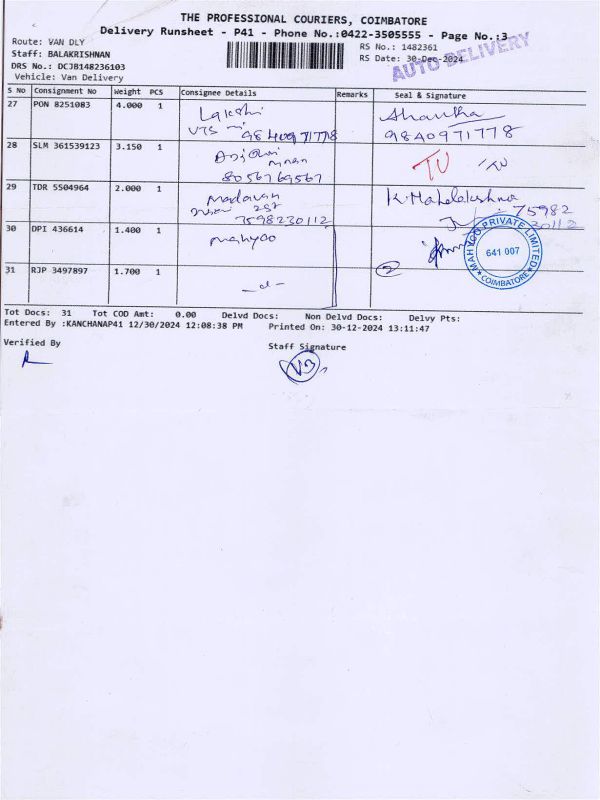 THE PROFESSIONAL COURIERS, COIMBATORE
Delivery Runsheet - P41 - Phone No.:0422-3505555 - Page No.:3
Route: VAN DLY
RS No.: 1482361
Staff: BALAKRISHNAN
RS Date: 30-Dec-2024
AUTO DELIVERY
DRS No.: DCJB148236103
Vehicle: Van Delivery
S No Consignment No Weight PCS Consignee Details Remarks Seal & Signature
27 PON 8251083 4.000 1 Lakshi
9840971778 9840971778
28 SLM 361539123 3.150 1
8056769567 TU
29 TDR 5504964 2.000 1 madavan K. Mahalakshna
7598230112 75982
30112
30 DPI 436614 1.400 1 mahyco
MAHYCO PRIVATE LIMITED
641 007
COIMBATORE
31 RJP 3497897 1.700 1 -d- 2
Tot Docs: 31 Tot COD Amt: 0.00 Delvd Docs: Non Delvd Docs: Delvy Pts:
Entered By :KANCHANAP41 12/30/2024 12:08:38 PM Printed On: 30-12-2024 13:11:47
Verified By Staff Signature